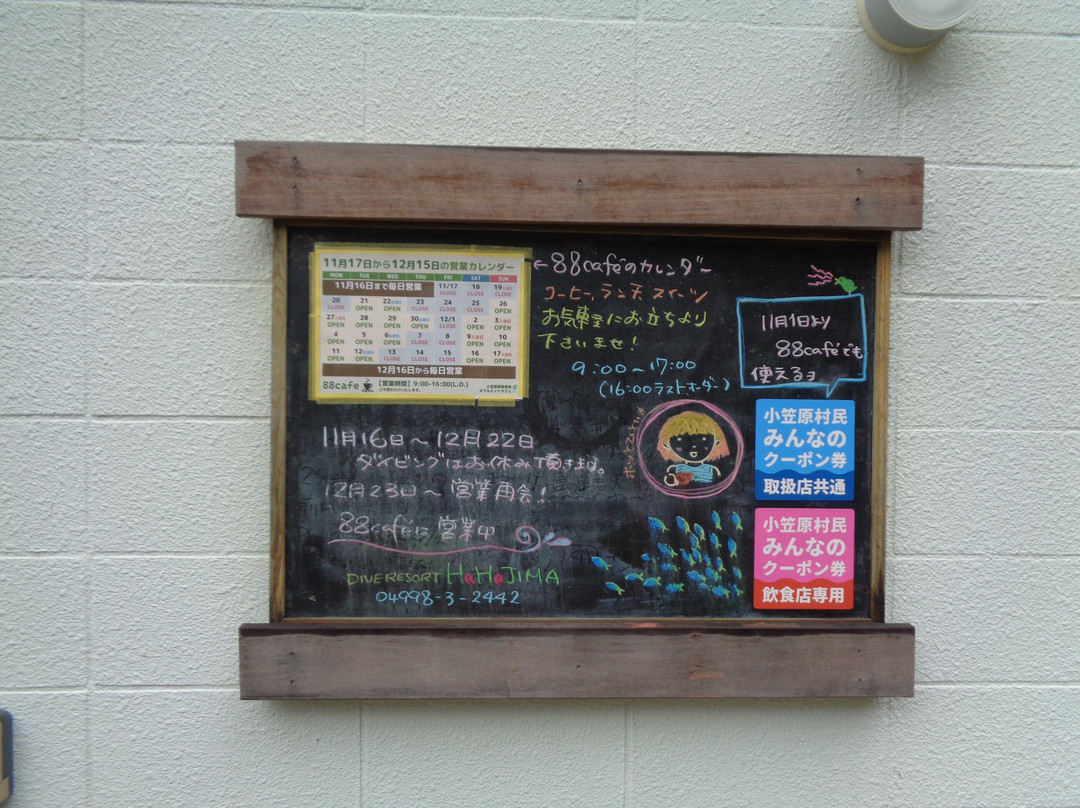 11月17日から12月15日の営業カレンダー
MON TUE WED THU FRI SAT SUN
11月16日まで毎日営業 11/17 CLOSE 18 CLOSE 19 CLOSE
20 CLOSE 21 OPEN 22 OPEN 23 CLOSE 24 CLOSE 25 CLOSE 26 OPEN
27 OPEN 28 OPEN 29 OPEN 30 OPEN 12/1 CLOSE 2 OPEN 3 OPEN
4 OPEN 5 OPEN 6 OPEN 7 CLOSE 8 CLOSE 9 OPEN 10 OPEN
11 OPEN 12 OPEN 13 CLOSE 14 CLOSE 15 CLOSE 16 OPEN 17 OPEN
12月16日から毎日営業
88cafe 【営業時間】9:00-16:00(L.O.)
←88caféのカレンダー
コーヒー、ランチ、スイーツ
お気軽にお立ちより
下さいませ!
9:00～17:00
(16:00ラストオーダー)
11月1日より
88caféでも
使えるヨ
11月16日～12月22日
ダイビングはお休み頂きます。
12月23日～営業再会!
88caféは営業中
DIVE RESORT HaHaJIMA
04998-3-2442
小笠原村民
みんなの
クーポン券
取扱店共通
小笠原村民
みんなの
クーポン券
飲食店専用